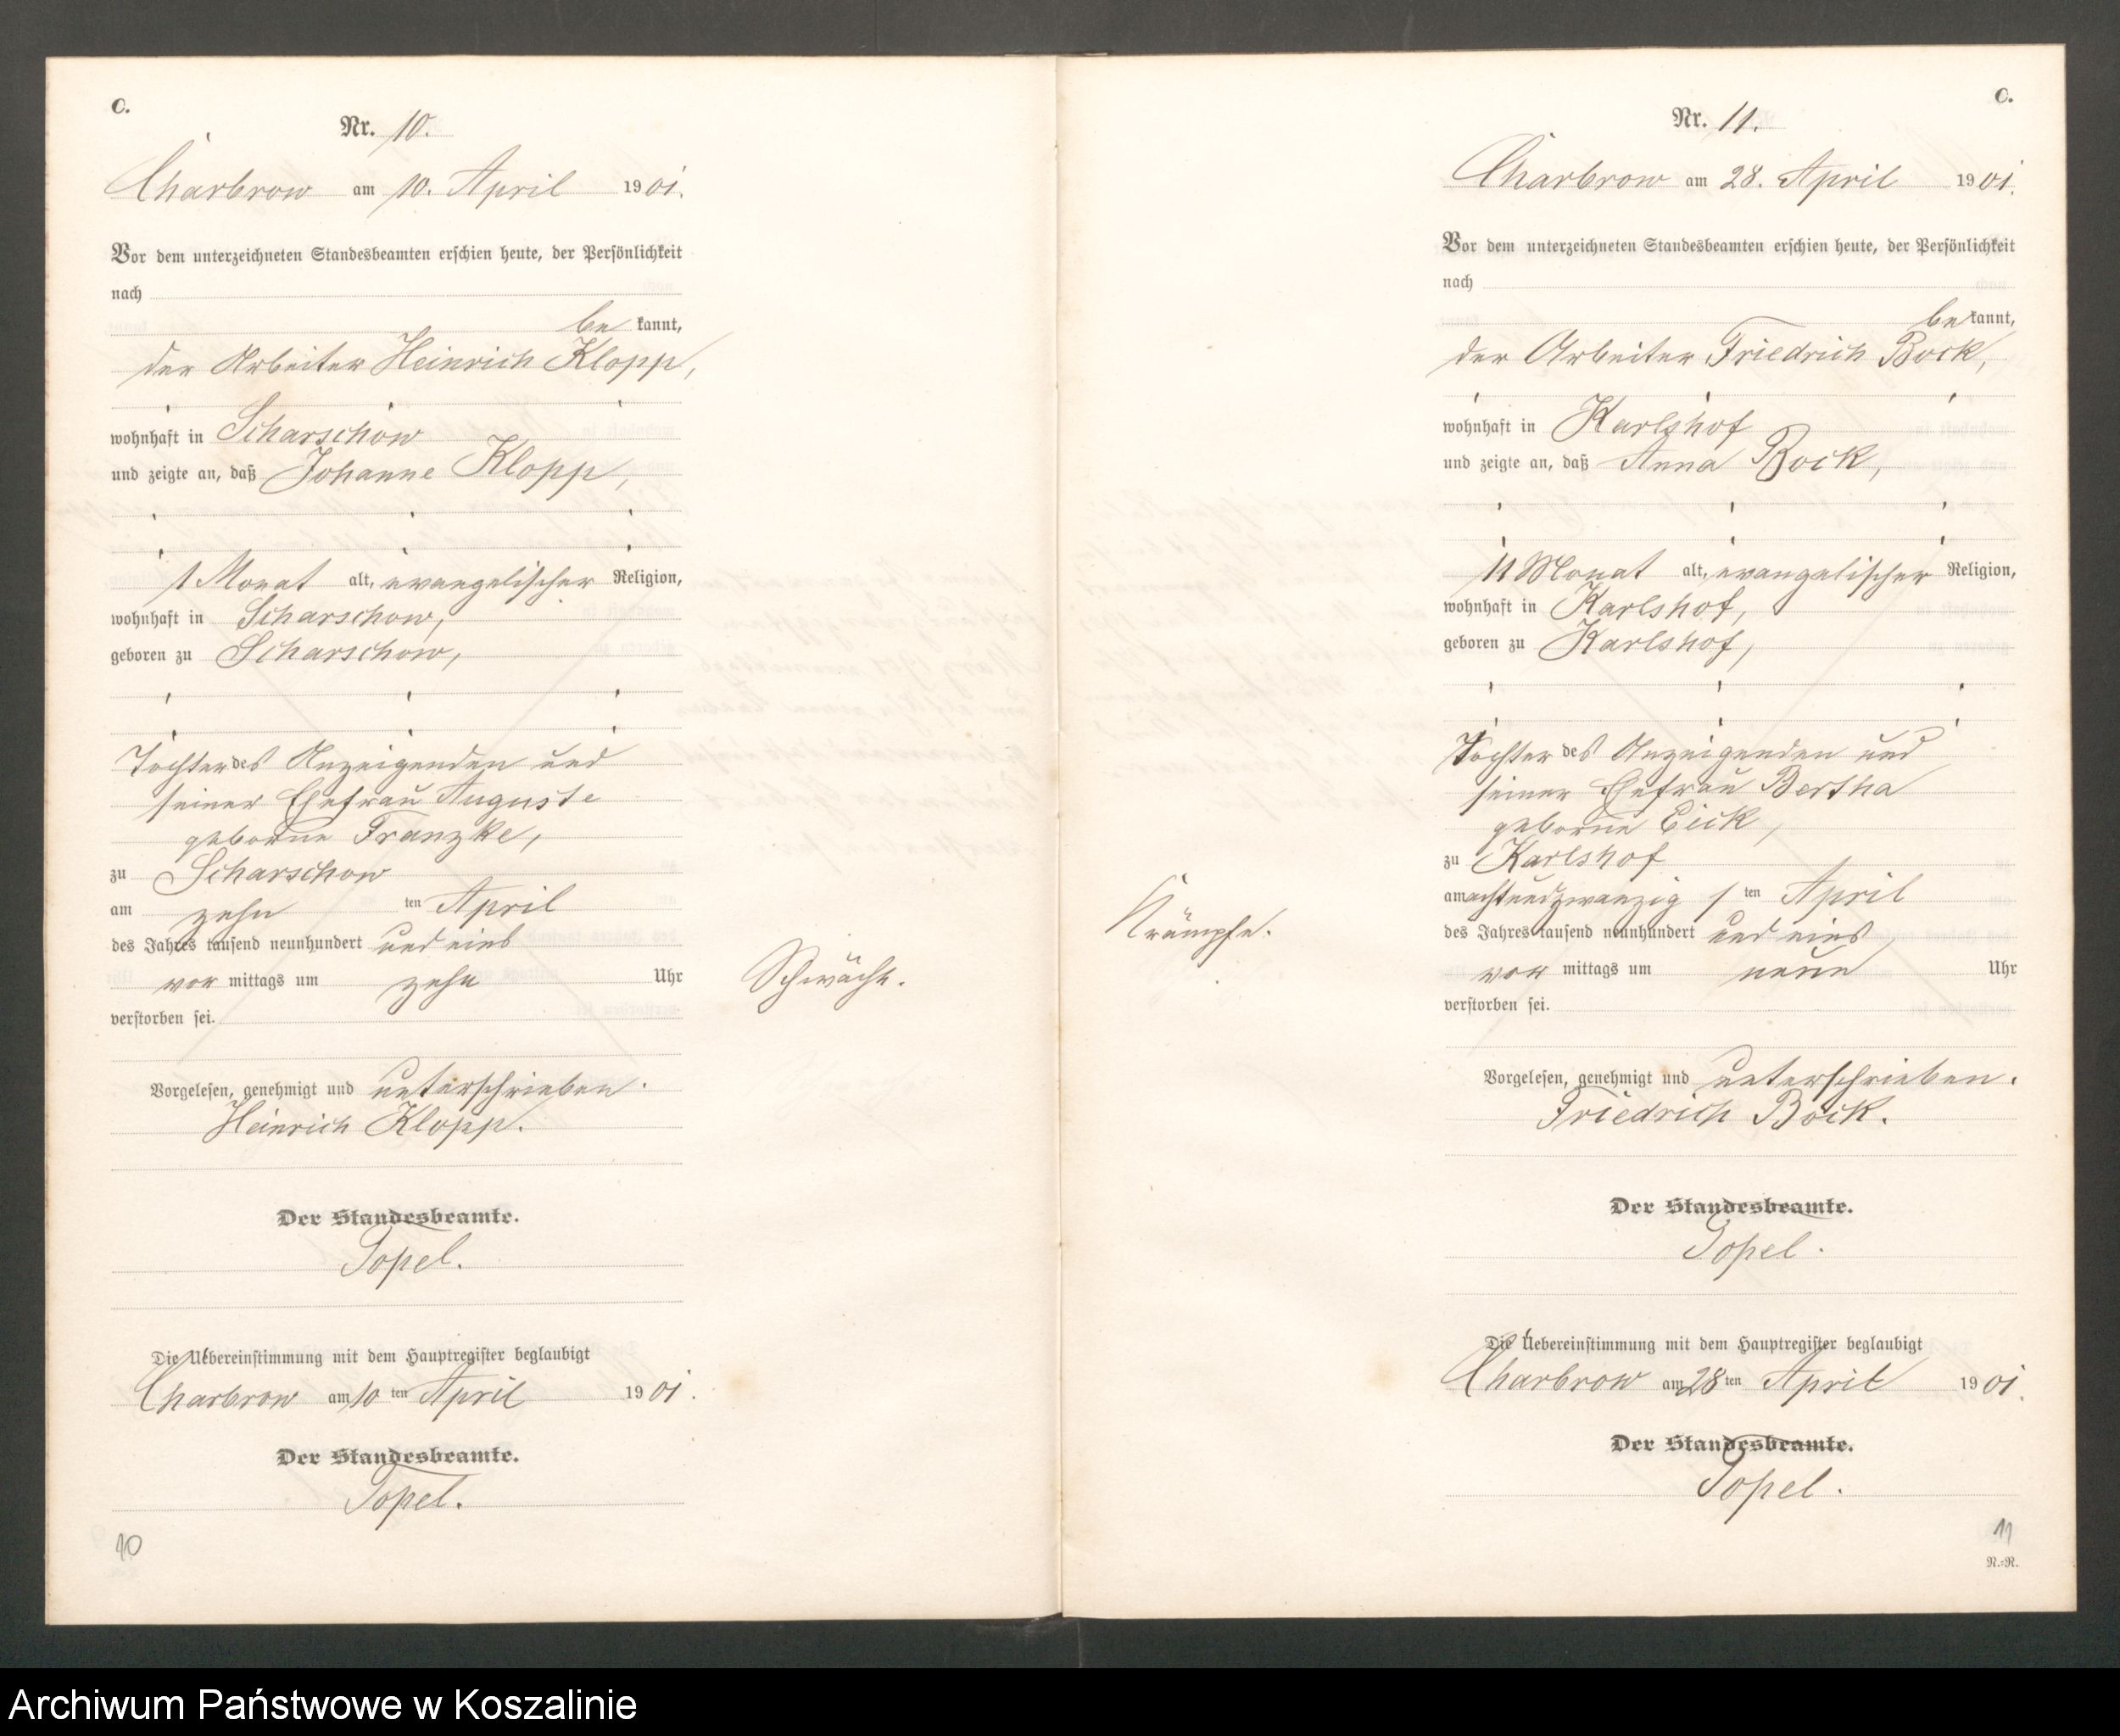 C.
Nr. 10.
Charbrow am 10. April 1901.
Vor dem unterzeichneten Standesbeamten erschien heute, der Persönlichkeit
nach
be kannt,
der Arbeiter Heinrich Klopp,
wohnhaft in Scharschow
und zeigte an, daß Johanne Klopp,
1 Monat alt, evangelischer Religion,
wohnhaft in Scharschow,
geboren zu Scharschow,
Tochter des Anzeigenden und
seiner Ehefrau Auguste
geborne Franzke,
zu Scharschow
am zehn ten April
des Jahres tausend neunhundert und eins
vor mittags um zehn Uhr
verstorben sei.
Schwäche.
Vorgelesen, genehmigt und unterschrieben.
Heinrich Klopp.
Der Standesbeamte.
Topel.
Die Uebereinstimmung mit dem Hauptregister beglaubigt
Charbrow am 10 ten April 1901.
Der Standesbeamte.
Topel.
10
C.
Nr. 11.
Charbrow am 28. April 1901.
Vor dem unterzeichneten Standesbeamten erschien heute, der Persönlichkeit
nach
be kannt,
der Arbeiter Friedrich Bock,
wohnhaft in Karlshof
und zeigte an, daß Anna Bock,
11 Monat alt, evangelischer Religion,
wohnhaft in Karlshof,
geboren zu Karlshof,
Tochter des Anzeigenden und
seiner Ehefrau Bertha
geborne Eick,
zu Karlshof
am achtundzwanzig sten April
des Jahres tausend neunhundert und eins
vor mittags um neun Uhr
verstorben sei.
Krämpfe.
Vorgelesen, genehmigt und unterschrieben.
Friedrich Bock.
Der Standesbeamte.
Topel.
Die Uebereinstimmung mit dem Hauptregister beglaubigt
Charbrow am 28 ten April 1901.
Der Standesbeamte.
Topel.
11
N.-R.
Archiwum Państwowe w Koszalinie